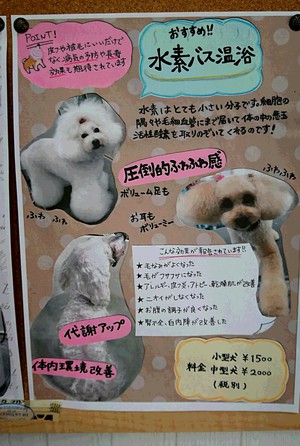 POINT!
皮フや被毛にいいだけで
なく病気の予防や長寿
効果も期待されています
おすすめ!!
水素バス温浴
水素はとても小さい分子です。細胞の
隅々や毛細血管にまで届いて体の中の悪玉
活性酸素を取りのぞいてくれるのです!
圧倒的ふわふわ感
ボリューム足も
ふわ ふわ
ふわ ふわ
お耳も
ボリューミー
こんな効果が報告されています!!
★毛なみがよくなった
★毛がフサフサになった
★アレルギー、皮フ炎、アトピー、乾燥肌が改善
★ニオイがしなくなった
★お腹の調子が良くなった
★腎不全、白内障が改善した
代謝アップ
体内環境改善
小型犬 ¥1500
料金 中型犬 ¥2000
(税別)